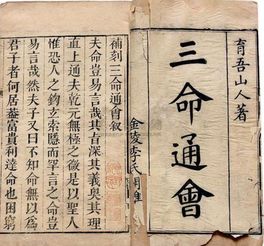 育吾山人著
三命通會
金陵李氏
補刻三命通會叙
夫命豈易言哉其旨深其義與其理
直上通夫乾元無極之
惟恐人之鉤玄索隱而罕言之命豈
易言哉然夫子又曰不知命無以爲
君子者何居蓋富貴利達命也困窮